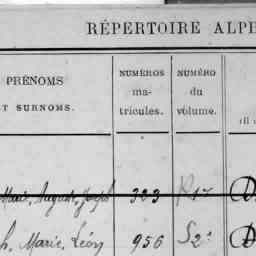 RÉPERTOIRE ALPH
PRÉNOMS
ET SURNOMS.
NUMÉROS
ma-
tricules.
NUMÉRO
du
volume.
Marie, Auguste, Joseph 323
h, Marie, Léon 956